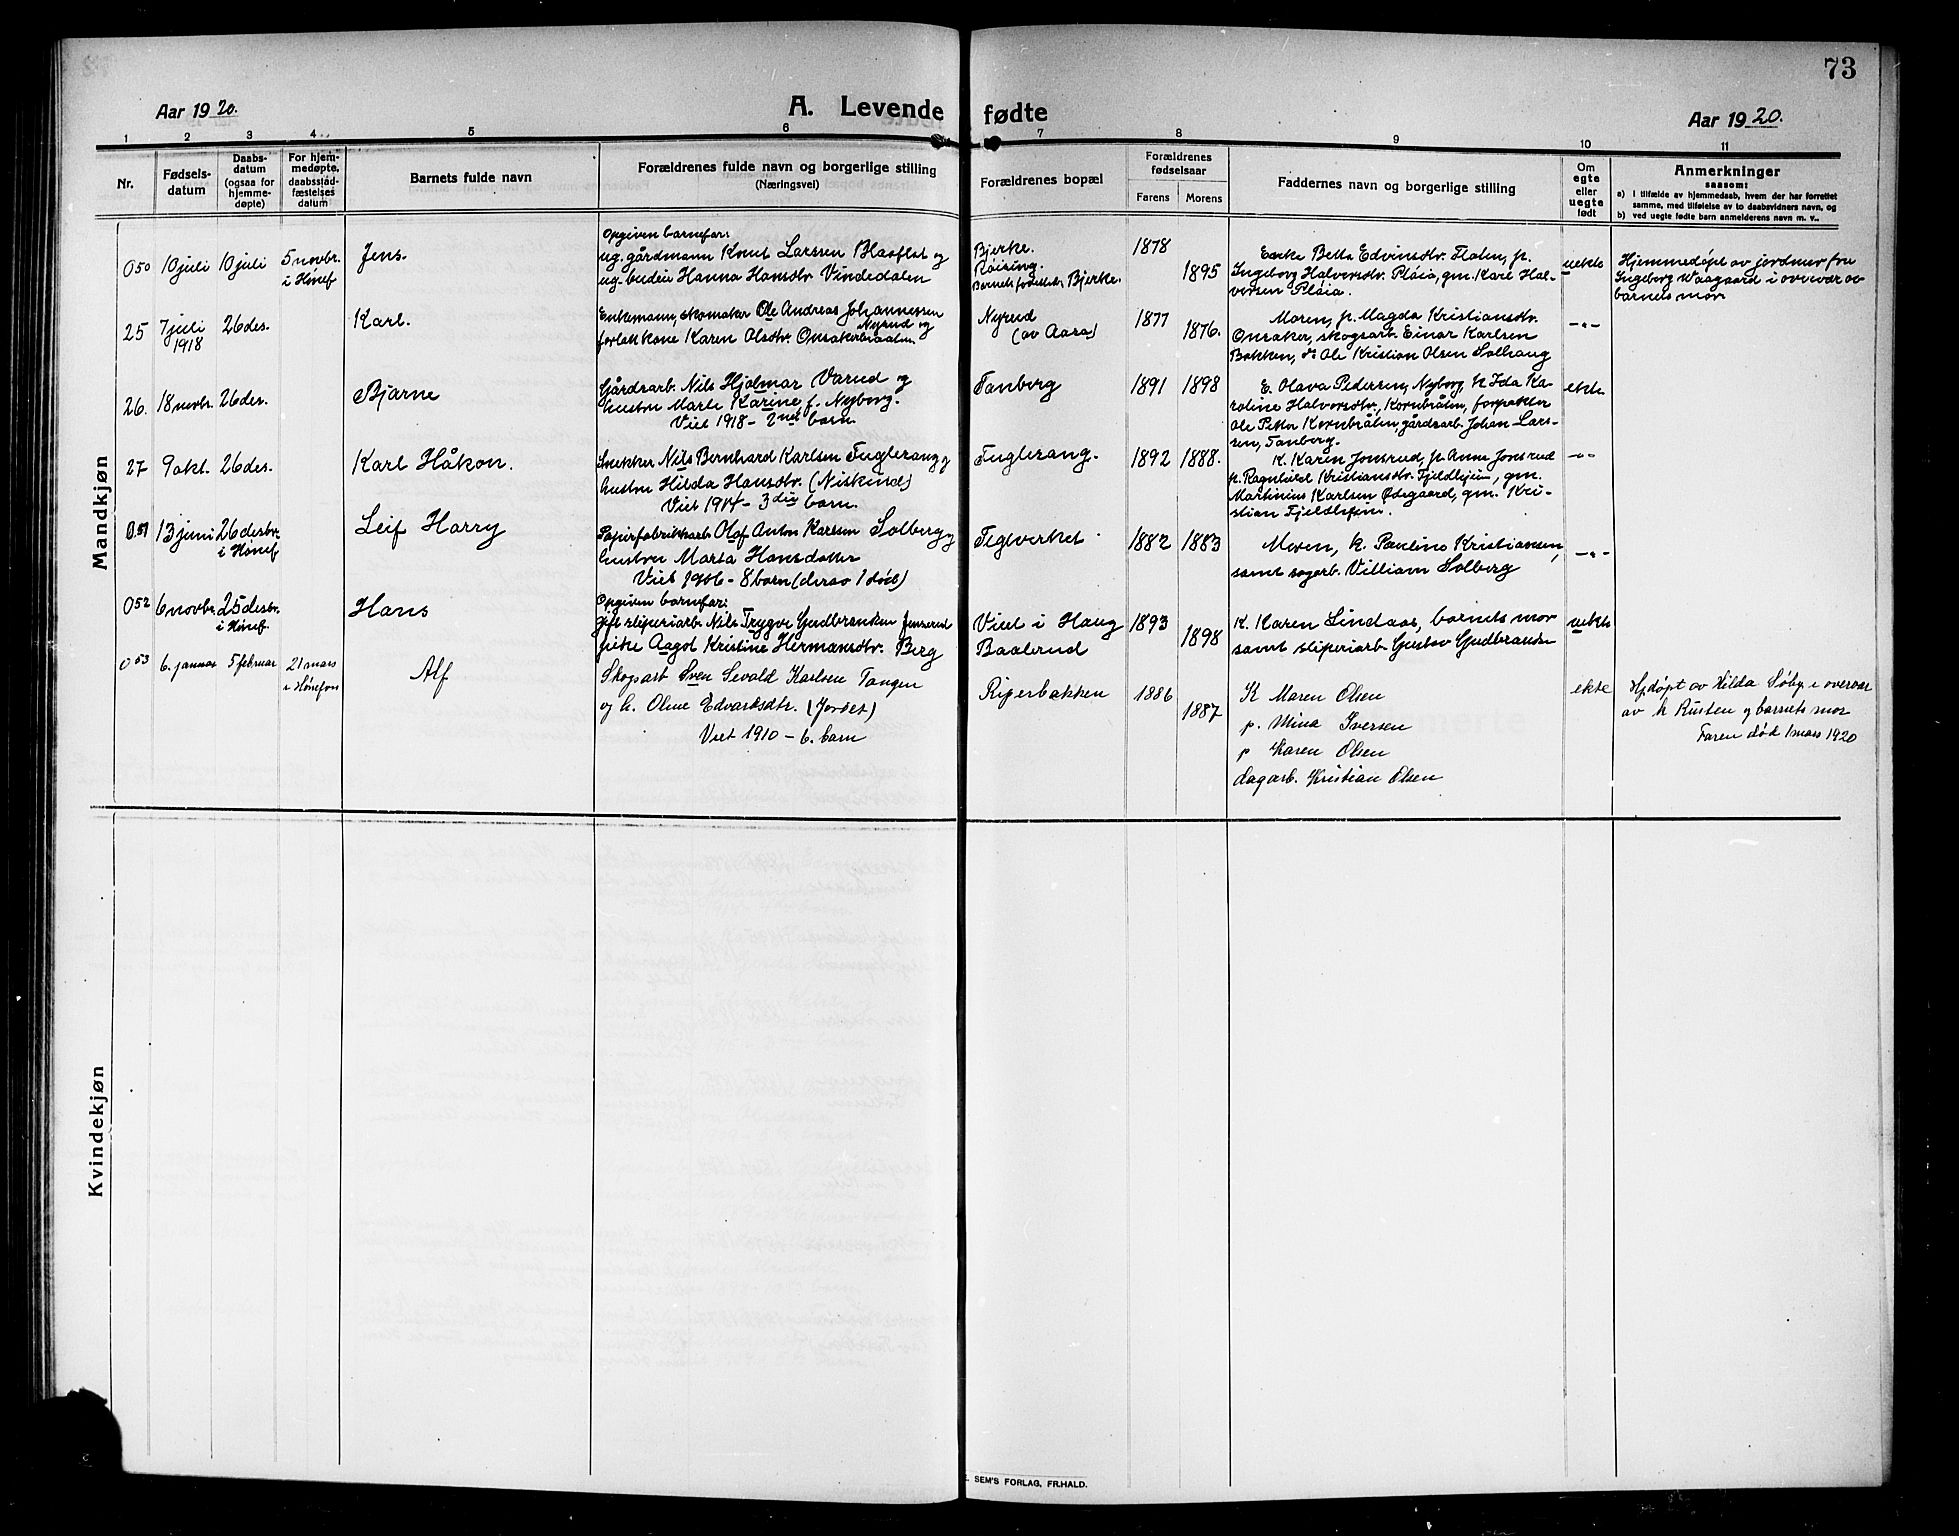 73
Aar 1920.
A. Levende fødte
Aar 1920.
1 2 3 4 5 6 7 8 9 10 11
Nr.
Fødsels-
datum
Daabs-
datum
(ogsaa for
hjemme-
døpte)
For hjem-
medøpte,
daabsstad-
fæstelses
datum
Barnets fulde navn
Forældrenes fulde navn og borgerlige stilling
(Næringsvei)
Forældrenes bopæl
Forældrenes
fødselsaar
Farens Morens
Faddernes navn og borgerlige stilling
Om
egte
eller
uegte
født
Anmerkninger
saasom:
a) i tilfælde av hjemmedaab, hvem der har forrettet
samme, med tilføielse av to daabsvidners navn, og
b) ved uegte fødte barn anmelderens navn m. v..
Mandkjøn
050 10 juli 10 juli 5 novbr.
i Hønef.
Jens.
Opgiven barnefar:
ug. gårdmann Knut Larssen Blaaflat og
ug. budeie Hanna Hansdtr. Vindedalen
Bjerke.
Røising.
Barnets fødested: Bjerke.
1878
1895
Enke Betta Edvinsdtr. Flaten, p.
Ingeborg Halvorsdtr. Pláia, gm. Kare Hal-
vorsen Pláia.
uekte
Hjemmedøpt av jordmor fru
Ingeborg Waagaard i overvær av
barnets mor
25 7 juli
1918
26 des.
Karl.
Enkemann, skomaker Ole Andreas Johannessen
Nyrud og
forlatt kone Karen Olsdtr. Onsakerbraaten.
Nyrud
(av Aasa)
1877
1876.
Moren, p. Magda Kristiansdtr.
Onsaker, skogsarb. Einar Karlsen
Bakken, do Ole Kristian Olsen Solhaug
—"—
26. 18 novbr. 26 des.
Bjarne
Gårdsarb. Nils Hjalmar Varud og
hustru Marte Karine f. Nyborg.
Viet 1918 - 2net barn.
Tanberg
1891 1898
E. Olava Pedersen, Nyborg, k Ida Ka-
roline Halvorsdtr., Kornbråten, forpakter
Ole Petter Kornbråten, gårdsarb. Johan Lars-
sen, Tanberg.
ekte.
27 9 okt. 26 des.
Karl Håkon.
Snekker Nils Bernhard Karlsen Fuglerang og
hustru Hilda Hansdtr. (Niskind)
Viet 1914 - 3die barn.
Fuglerang.
1892 1888.
K. Karen Jonsrud, p. Anna Jonsrud
p. Ragnhild Kristiansdtr. Fjeldheim, gm.
Martinius Karlsen Ødegaard, gm. Kri-
stian Fjeldheim.
—"—
051 13 juni 26 desbr.
i Hønef.
Leif Harry
Papirfabrikkarb. Olaf Anton Karlsen Solberg og
hustru Marta Hansdatter
Viet 1906 - 8 barn (derav 1 død)
Teglverket
1882 1883
Moren, k. Pauline Kristiansen,
samt sagarb. Villiam Solberg
—"—
052 6 novbr. 25 desbr.
i Hønef.
Hans
Opgiven barnefar:
gift sliperiarb. Nils Trygve Gudbrandsen Jensrud
pike Aagot Kristine Hermansdtr. Berg
Viul i Haug
Baalerud
1893
1898
K. Karen Lindaas, barnets mor
samt sliperiarb. Gustav Gudbrandsen
uekte
053 6. januar 5 februar 21 mars
i Hønefoss
Alf
Skogsarb Sven Sevald Karlsen Tangen
og h. Oline Edvardsdtr. (Jordet)
Viet 1910 - 6. barn
Riperbakken
1886
1887
K Maren Olsen
p. Mina Iversen
p Karen Olsen
dagarb. Kristian Olsen
ekte
Hjdøpt av Hilda Søby i overvær
av k Rusten og barnets mor
Faren død 1 mars 1920
Kvindekjøn
SEM'S FORLAG, FR.HALD.